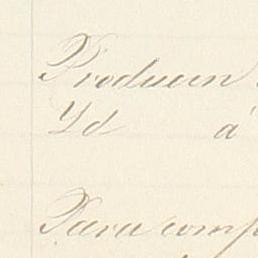 Producen
Yd á
Para comp